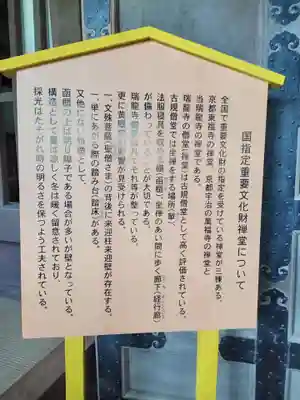 国指定重要文化財禅堂について
全国で重要文化財の指定を受けている禅堂が三棟ある。
京都東福寺の禅堂、京都宇治の萬福寺の禅堂と
当瑞龍寺の禅堂である。
瑞龍寺の僧堂(禅堂)は古規僧堂として高く評価されている。
古規僧堂では坐禅をする場所(単)、
法服寝具を収める棚(函櫃)、坐禅のあい間に歩く廊下(経行廊)
が備わっていることが大切である。
瑞龍寺 それ等が整っている。
更に黄檗 影響が見受けられる。
一、文殊菩薩(聖僧さま)の背後に来迎柱来迎壁が存在する。
一、単にあがる際の踏み台(踏床)がある。
又他にない特徴として
函櫃の上は明り障子である場合が多いが壁となっている。
構造として夏は涼しく冬は暖く留意されており、
採光はたそがれ時の明るさを保つよう工夫されている。